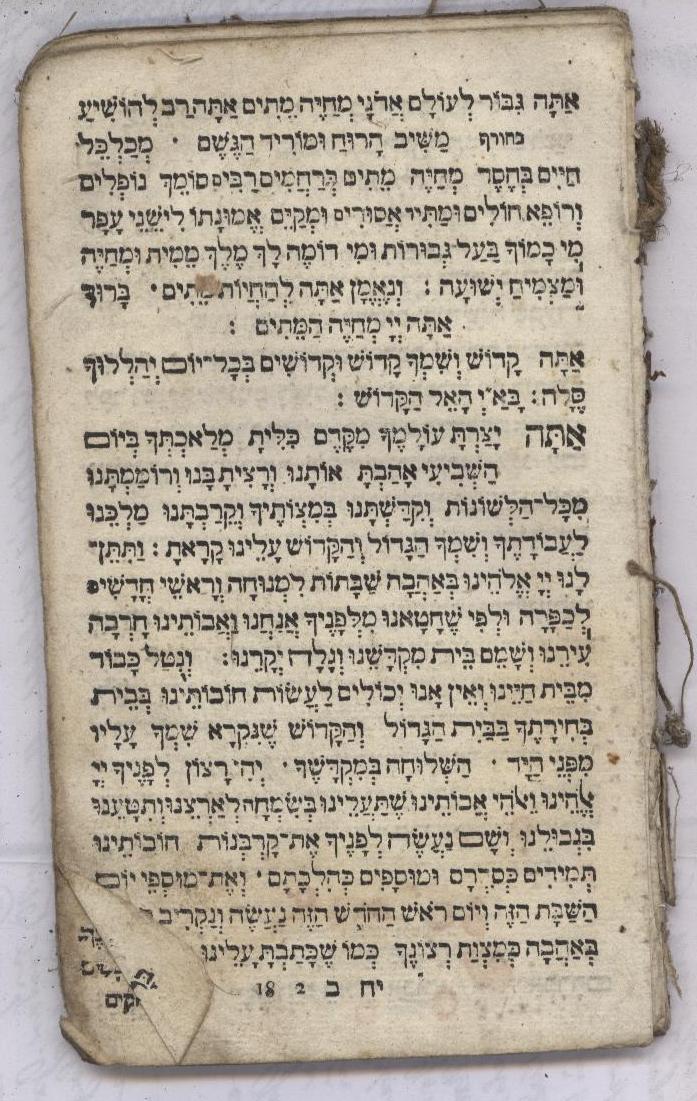 אַתָּה גִּבּוֹר לְעוֹלָם אֲדֹנָי מְחַיֶּה מֵתִים אַתָּה רַב לְהוֹשִׁיעַ
בחורף מַשִּׁיב הָרוּחַ וּמוֹרִיד הַגֶּשֶׁם · מְכַלְכֵּל
חַיִּים בְּחֶסֶד מְחַיֶּה מֵתִים בְּרַחֲמִים רַבִּים סוֹמֵךְ נוֹפְלִים
וְרוֹפֵא חוֹלִים וּמַתִּיר אֲסוּרִים וּמְקַיֵּם אֱמוּנָתוֹ לִישֵׁנֵי עָפָר
מִי כָמוֹךָ בַּעַל גְּבוּרוֹת וּמִי דוֹמֶה לָּךְ מֶלֶךְ מֵמִית וּמְחַיֶּה
וּמַצְמִיחַ יְשׁוּעָה : וְנֶאֱמָן אַתָּה לְהַחֲיוֹת מֵתִים · בָּרוּךְ
אַתָּה יְיָ מְחַיֵּה הַמֵּתִים :
אַתָּה קָדוֹשׁ וְשִׁמְךָ קָדוֹשׁ וּקְדוֹשִׁים בְּכָל־יוֹם יְהַלְלוּךָ
סֶּלָה : בָּאַ"יְ הָאֵל הַקָּדוֹשׁ :
אַתָּה יָצַרְתָּ עוֹלָמְךָ מִקֶּדֶם כִּלִּיתָ מְלַאכְתְּךָ בְּיוֹם
הַשְּׁבִיעִי אָהַבְתָּ אוֹתָנוּ וְרָצִיתָ בָּנוּ וְרוֹמַמְתָּנוּ
מִכָּל־הַלְּשׁוֹנוֹת וְקִדַּשְׁתָּנוּ בְּמִצְוֹתֶיךָ וְקֵרַבְתָּנוּ מַלְכֵּנוּ
לַעֲבוֹדָתֶךָ וְשִׁמְךָ הַגָּדוֹל וְהַקָּדוֹשׁ עָלֵינוּ קָרָאתָ : וַתִּתֶּן־
לָנוּ יְיָ אֱלֹהֵינוּ בְּאַהֲבָה שַׁבָּתוֹת לִמְנוּחָה וְרָאשֵׁי חֳדָשִׁים
לְכַפָּרָה וּלְפִי שֶׁחָטָאנוּ מִלְּפָנֶיךָ אֲנַחְנוּ וַאֲבוֹתֵינוּ חָרְבָה
עִירֵנוּ וְשָׁמֵם בֵּית מִקְדָּשֵׁנוּ וְגָלָה יְקָרֵנוּ : וְנֻטַּל כָּבוֹד
מִבֵּית חַיֵּינוּ וְאֵין אָנוּ יְכוֹלִים לַעֲשׂוֹת חוֹבוֹתֵינוּ בְּבֵית
בְּחִירָתֶךָ בַּבַּיִת הַגָּדוֹל וְהַקָּדוֹשׁ שֶׁנִּקְרָא שִׁמְךָ עָלָיו
מִפְּנֵי הַיָּד · הַשְּׁלוּחָה בְּמִקְדָּשֶׁךָ · יְהִי רָצוֹן לְפָנֶיךָ יְיָ
אֱלֹהֵינוּ וֵאלֹהֵי אֲבוֹתֵינוּ שֶׁתַּעֲלֵינוּ בְּשִׂמְחָה לְאַרְצֵנוּ וְתִטָּעֵנוּ
בִּגְבוּלֵנוּ וְשָׁם נַעֲשֶׂה לְפָנֶיךָ אֶת־קָרְבְּנוֹת חוֹבוֹתֵינוּ
תְּמִידִים כְּסִדְרָם וּמוּסָפִים כְּהִלְכָתָם · וְאֶת־מוּסְפֵי יוֹם
הַשַּׁבָּת הַזֶּה וְיוֹם רֹאשׁ הַחֹדֶשׁ הַזֶּה נַעֲשֶׂה וְנַקְרִיב
בְּאַהֲבָה כְּמִצְוַת רְצוֹנֶךָ כְּמוֹ שֶׁכָּתַבְתָּ עָלֵינוּ
יח ב 2 18